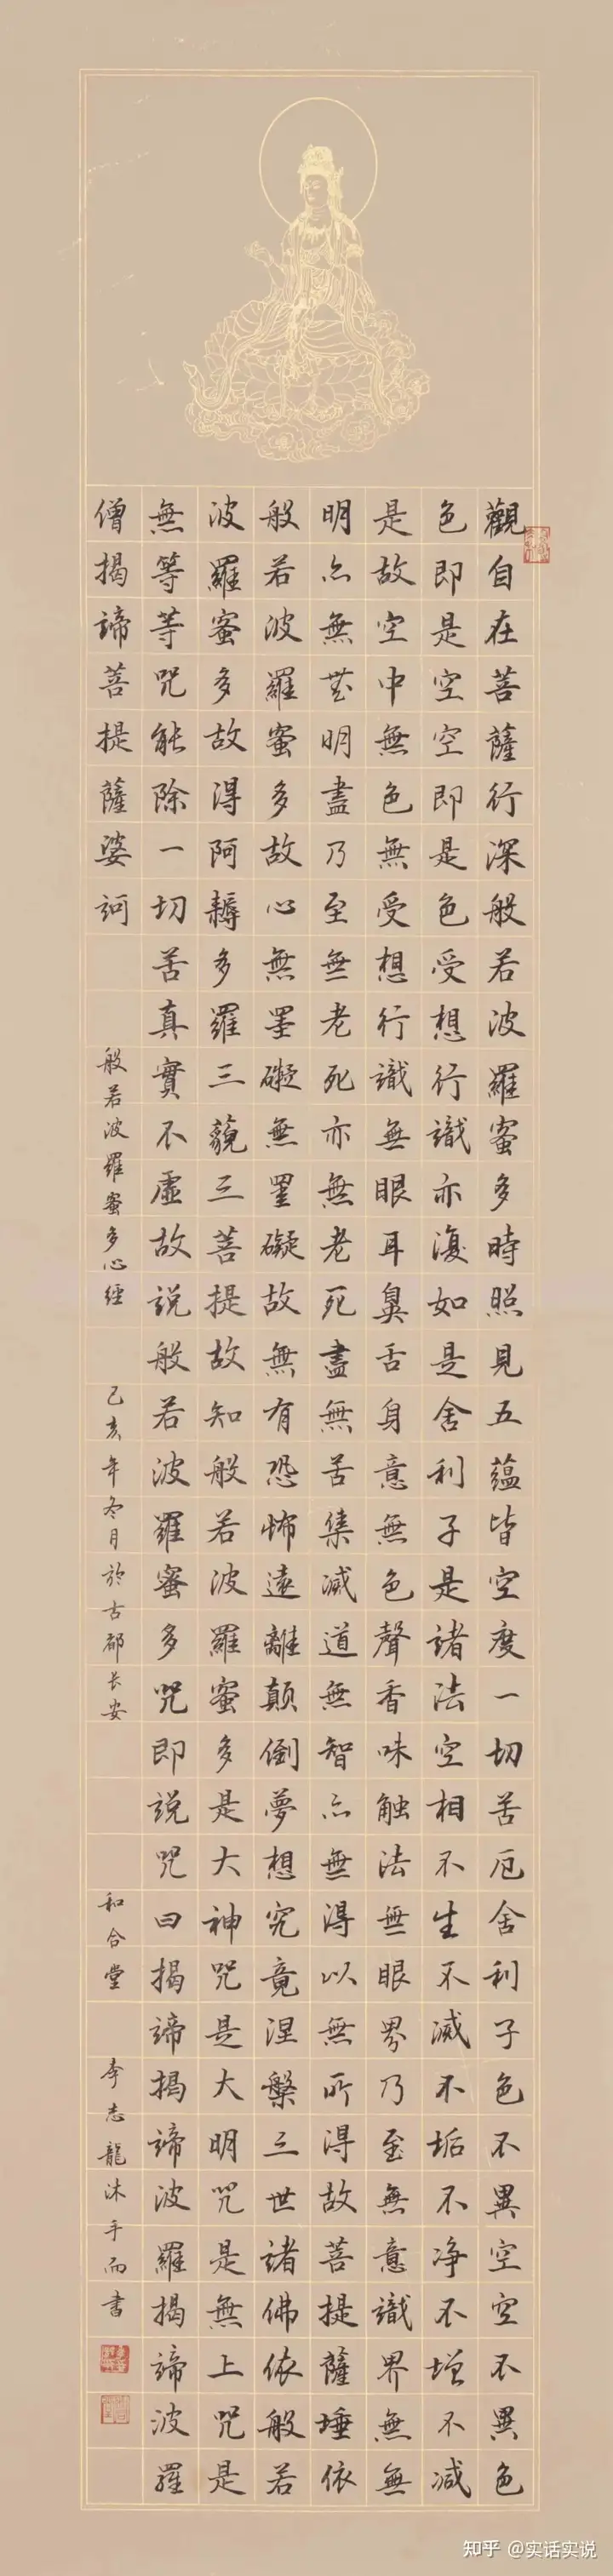 觀自在菩薩行深般若波羅蜜多時照見五蘊皆空度一切苦厄舍利子色不異空空不異色
色即是空空即是色受想行識亦復如是舍利子是諸法空相不生不滅不垢不净不增不減
是故空中無色無受想行識無眼耳鼻舌身意無色聲香味觸法無眼界乃至無意識界無無
明亦無無明盡乃至無老死亦無老死盡無苦集滅道無智亦無得以無所得故菩提薩埵依
般若波羅蜜多故心無罣礙無罣礙故無有恐怖遠離顛倒夢想究竟涅槃三世諸佛依般若
波羅蜜多故得阿耨多羅三藐三菩提故知般若波羅蜜多是大神咒是大明咒是無上咒是
無等等咒能除一切苦真實不虛故説般若波羅蜜多咒即説咒曰揭諦揭諦波羅揭諦波羅
僧揭諦菩提薩婆訶 般若波羅蜜多心經 己亥年冬月於古都长安 和合堂 李志龍沐手而書
知乎 @实话实说